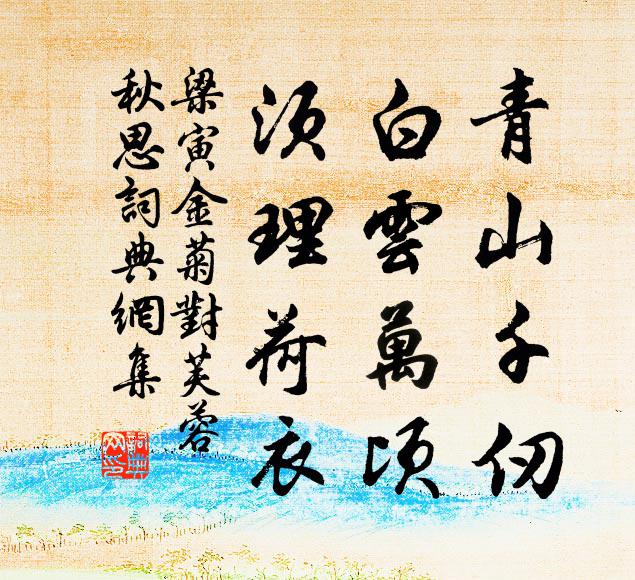 青山千仞
白雲萬頃
須理荷衣
梁寅金菊對芙蓉
秋思詞典網集